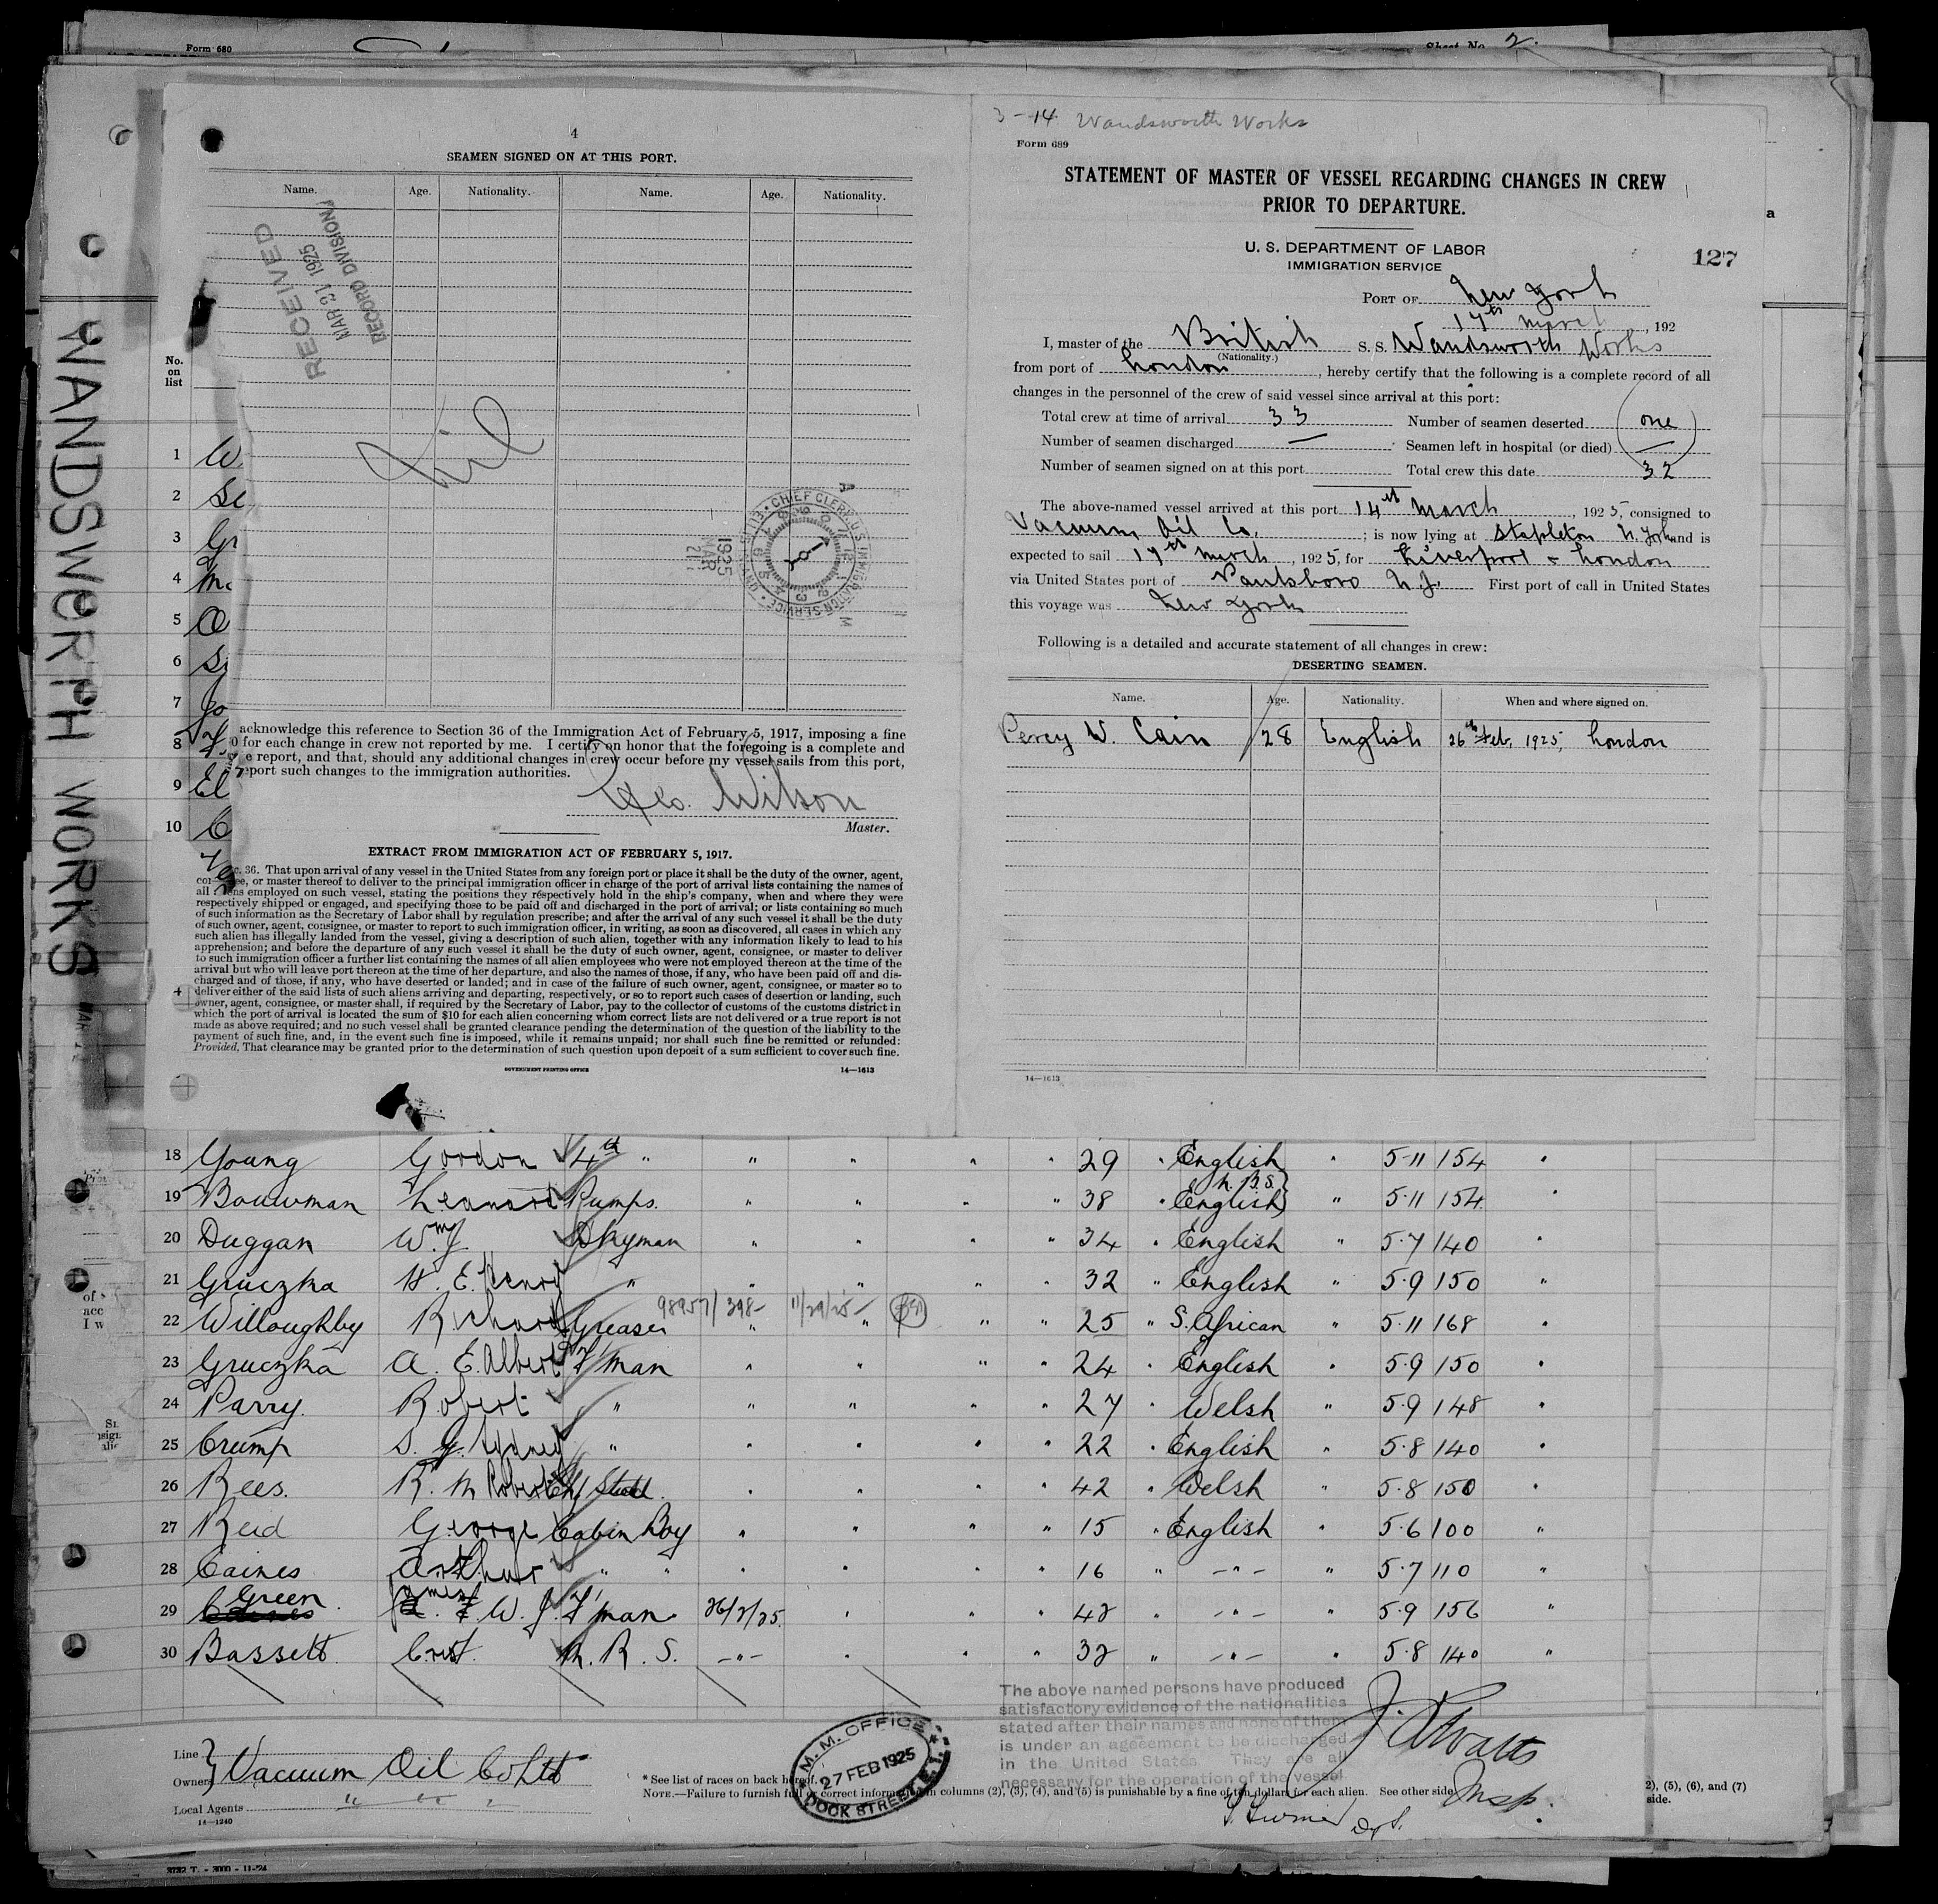 Form 680
Sheet No. 2.
WANDSWORTH WORKS
4
SEAMEN SIGNED ON AT THIS PORT.
Name. Age. Nationality. Name. Age. Nationality.
RECEIVED
MAR 21 1925
RECORD DIVISION
Nil
CHIEF CLERK U.S. IMMIGRATION SERVICE
1925
MAR
21
acknowledge this reference to Section 36 of the Immigration Act of February 5, 1917, imposing a fine
0 for each change in crew not reported by me. I certify on honor that the foregoing is a complete and
e report, and that, should any additional changes in crew occur before my vessel sails from this port,
eport such changes to the immigration authorities.
Geo. Wilson
Master.
EXTRACT FROM IMMIGRATION ACT OF FEBRUARY 5, 1917.
c. 36. That upon arrival of any vessel in the United States from any foreign port or place it shall be the duty of the owner, agent,
ee, or master thereof to deliver to the principal immigration officer in charge of the port of arrival lists containing the names of
all ens employed on such vessel, stating the positions they respectively hold in the ship's company, when and where they were
respectively shipped or engaged, and specifying those to be paid off and discharged in the port of arrival; or lists containing so much
of such information as the Secretary of Labor shall by regulation prescribe; and after the arrival of any such vessel it shall be the duty
of such owner, agent, consignee, or master to report to such immigration officer, in writing, as soon as discovered, all cases in which any
such alien has illegally landed from the vessel, giving a description of such alien, together with any information likely to lead to his
apprehension; and before the departure of any such vessel it shall be the duty of such owner, agent, consignee, or master to deliver
to such immigration officer a further list containing the names of all alien employees who were not employed thereon at the time of the
arrival but who will leave port thereon at the time of her departure, and also the names of those, if any, who have been paid off and dis-
charged and of those, if any, who have deserted or landed; and in case of the failure of such owner, agent, consignee, or master so to
deliver either of the said lists of such aliens arriving and departing, respectively, or so to report such cases of desertion or landing, such
owner, agent, consignee, or master shall, if required by the Secretary of Labor, pay to the collector of customs of the customs district in
which the port of arrival is located the sum of $10 for each alien concerning whom correct lists are not delivered or a true report is not
made as above required; and no such vessel shall be granted clearance pending the determination of the question of the liability to the
payment of such fine, and, in the event such fine is imposed, while it remains unpaid; nor shall such fine be remitted or refunded:
Provided, That clearance may be granted prior to the determination of such question upon deposit of a sum sufficient to cover such fine.
GOVERNMENT PRINTING OFFICE 14—1613
3-14 Wandsworth Works
Form 689
STATEMENT OF MASTER OF VESSEL REGARDING CHANGES IN CREW
PRIOR TO DEPARTURE.
U. S. DEPARTMENT OF LABOR
IMMIGRATION SERVICE
127
PORT OF New York
17th March, 192
I, master of the British S. S. Wandsworth Works
(Nationality.)
from port of London, hereby certify that the following is a complete record of all
changes in the personnel of the crew of said vessel since arrival at this port:
Total crew at time of arrival 33 Number of seamen deserted one
Number of seamen discharged — Seamen left in hospital (or died) —
Number of seamen signed on at this port Total crew this date 32
The above-named vessel arrived at this port 14th March, 1925, consigned to
Vacuum Oil Co.; is now lying at Stapleton N. York and is
expected to sail 17th March, 1925, for Liverpool & London
via United States port of Paulsboro N.J. First port of call in United States
this voyage was New York
Following is a detailed and accurate statement of all changes in crew:
DESERTING SEAMEN.
Name. Age. Nationality. When and where signed on.
Percy W. Cain 28 English 26th Feb. 1925, London
14—1613
No. on list
1 W.
2
3 Gr
4
5
6
7 Jo
8
9 El
10 C
18 Young Gordon 4th " " " " " 29 " English " 5-11 154 "
19 Bouwman Leonard Pumps. " " " " 38 " English N.B.S. " 5.11 154 "
20 Duggan Wm J. Dkyman " " " 34 " English " 5.7 140 "
21 Gruczka H. E. Henry " " " " " 32 " English " 5.9 150 "
22 Willoughby Richard Greaser 98957/398- 11/29/25- " " " " 25 " S. African " 5.11 168 "
23 Gruczka A. E. Albert F'man " " " " 24 " English " 5.9 150 "
24 Parry. Robert " " " " " 27 " Welsh " 5.9 148 "
25 Crump S. J. Sydney " " " " " 22 " English " 5.8 140 "
26 Rees. R. M Robert Chf Stwd. " " " " 42 " Welsh " 5.8 150 "
27 Reid George Cabin Boy " " " " 15 " English " 5.6 100 "
28 Caines Arthur " " " " " " 16 " -"- " 5.7 110 "
29 Green James W. J. F'man 26/2/25. " " " 42 " -"- " 5.9 156 "
30 Bassett. Crist. M. R. S. -"- " " " 32 " -"- " 5.8 140 "
The above named persons have produced
satisfactory evidence of the nationalities
stated after their names and none of them
is under an agreement to be discharged
in the United States. They are all
necessary for the operation of the vessel
Line
Owners Vacuum Oil Co Ltd
Local Agents " " "
14—1240
M. M. OFFICE
27 FEB 1925
DOCK STREET E.1.
* See list of races on back hereof.
NOTE.—Failure to furnish full or correct information in columns (2), (3), (4), and (5) is punishable by a fine of ten dollars for each alien. See other side
Insp.
2), (5), (6), and (7)
side.
3732 T. - 3000 - 11-24